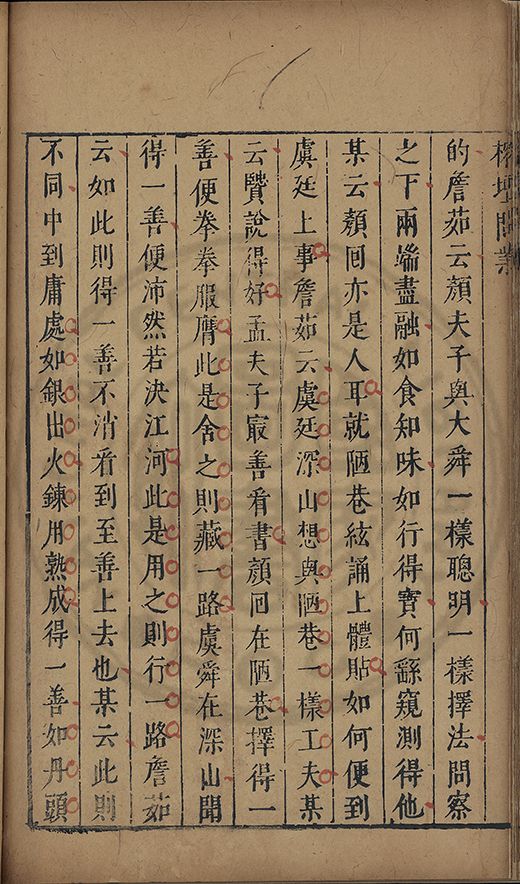 榕壇問業
的詹茹云顏夫子與大舜一樣聰明一樣擇法問察
之下兩端盡融如食知味如行得寶何繇窺測得他
某云顏回亦是人耳就陋巷絃誦上體貼如何便到
虞廷上事詹茹云虞廷深山想與陋巷一樣工夫某
云賢說得好孟夫子最善看書顏回在陋巷擇得一
善便拳拳服膺此是舍之則藏一路虞舜在深山聞
得一善便沛然若決江河此是用之則行一路詹茹
云如此則得一善不消看到至善上去也某云此則
不同中到庸處如銀出火鍊用熟成得一善如丹頭